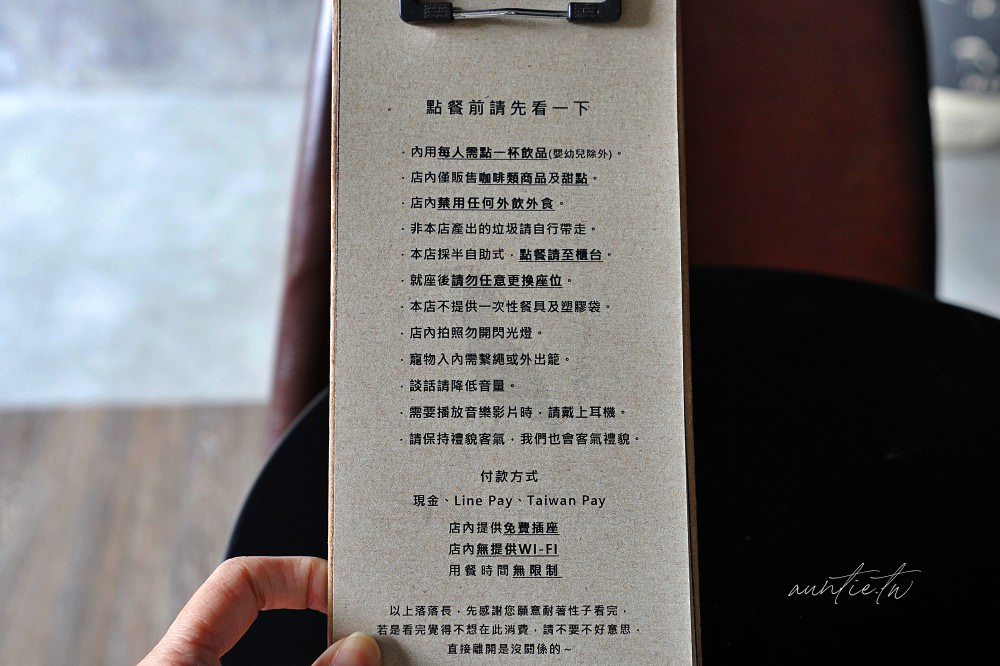 點餐前請先看一下
·內用每人需點一杯飲品(嬰幼兒除外)。
·店內僅販售咖啡類商品及甜點。
·店內禁用任何外飲外食。
·非本店產出的垃圾請自行帶走。
·本店採半自助式,點餐請至櫃台。
·就座後請勿任意更換座位。
·本店不提供一次性餐具及塑膠袋。
·店內拍照勿開閃光燈。
·寵物入內需繫繩或外出籠。
·談話請降低音量。
·需要播放音樂影片時,請戴上耳機。
·請保持禮貌客氣,我們也會客氣禮貌。
付款方式
現金、Line Pay、Taiwan Pay
店內提供免費插座
店內無提供WI-FI
用餐時間無限制
以上落落長,先感謝您願意耐著性子看完,
若是看完覺得不想在此消費,請不要不好意思,
直接離開是沒關係的~
auntie.tw